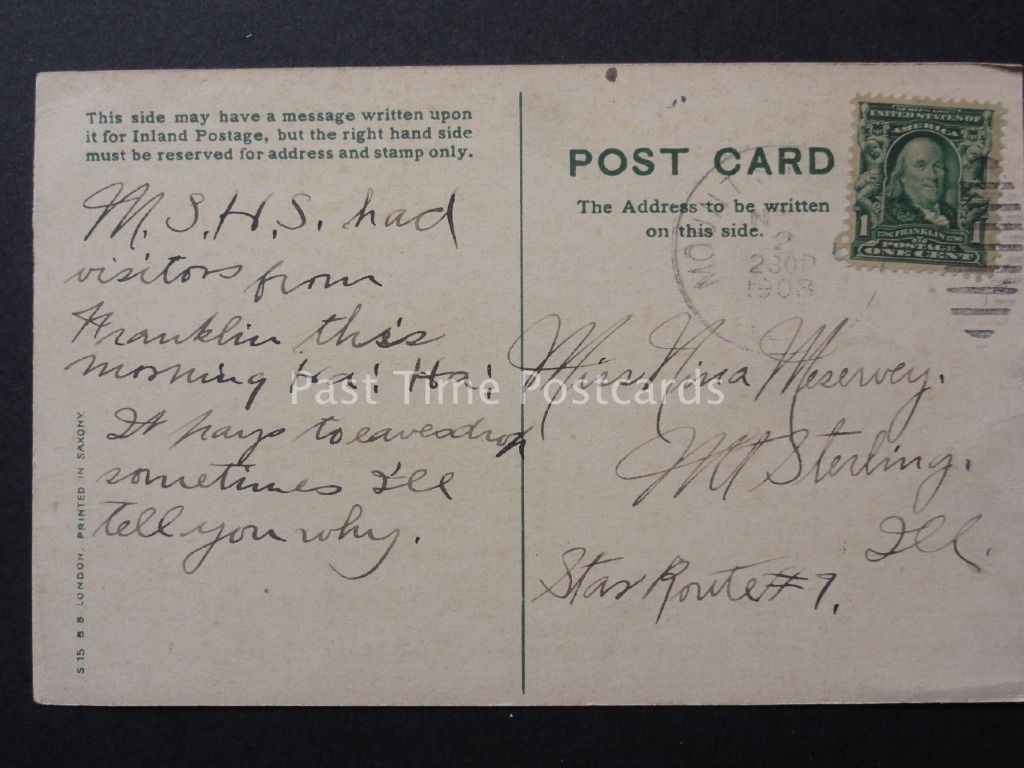 This side may have a message written upon
it for Inland Postage, but the right hand side
must be reserved for address and stamp only.
M. S. H. S. had
visitors from
Franklin this
morning Ha! Ha!
It pays to eavesdrop
sometimes I'll
tell you why.
S 15 B. B. LONDON. PRINTED IN SAXONY.
POST CARD
The Address to be written
on this side.
MOUNT
2
230P
1908
UNITED STATES OF
AMERICA
1 FRANKLIN 1
POSTAGE
ONE CENT
Miss Nina Meservey.
Mt Sterling.
Ill.
Star Route #7.
Past Time Postcards